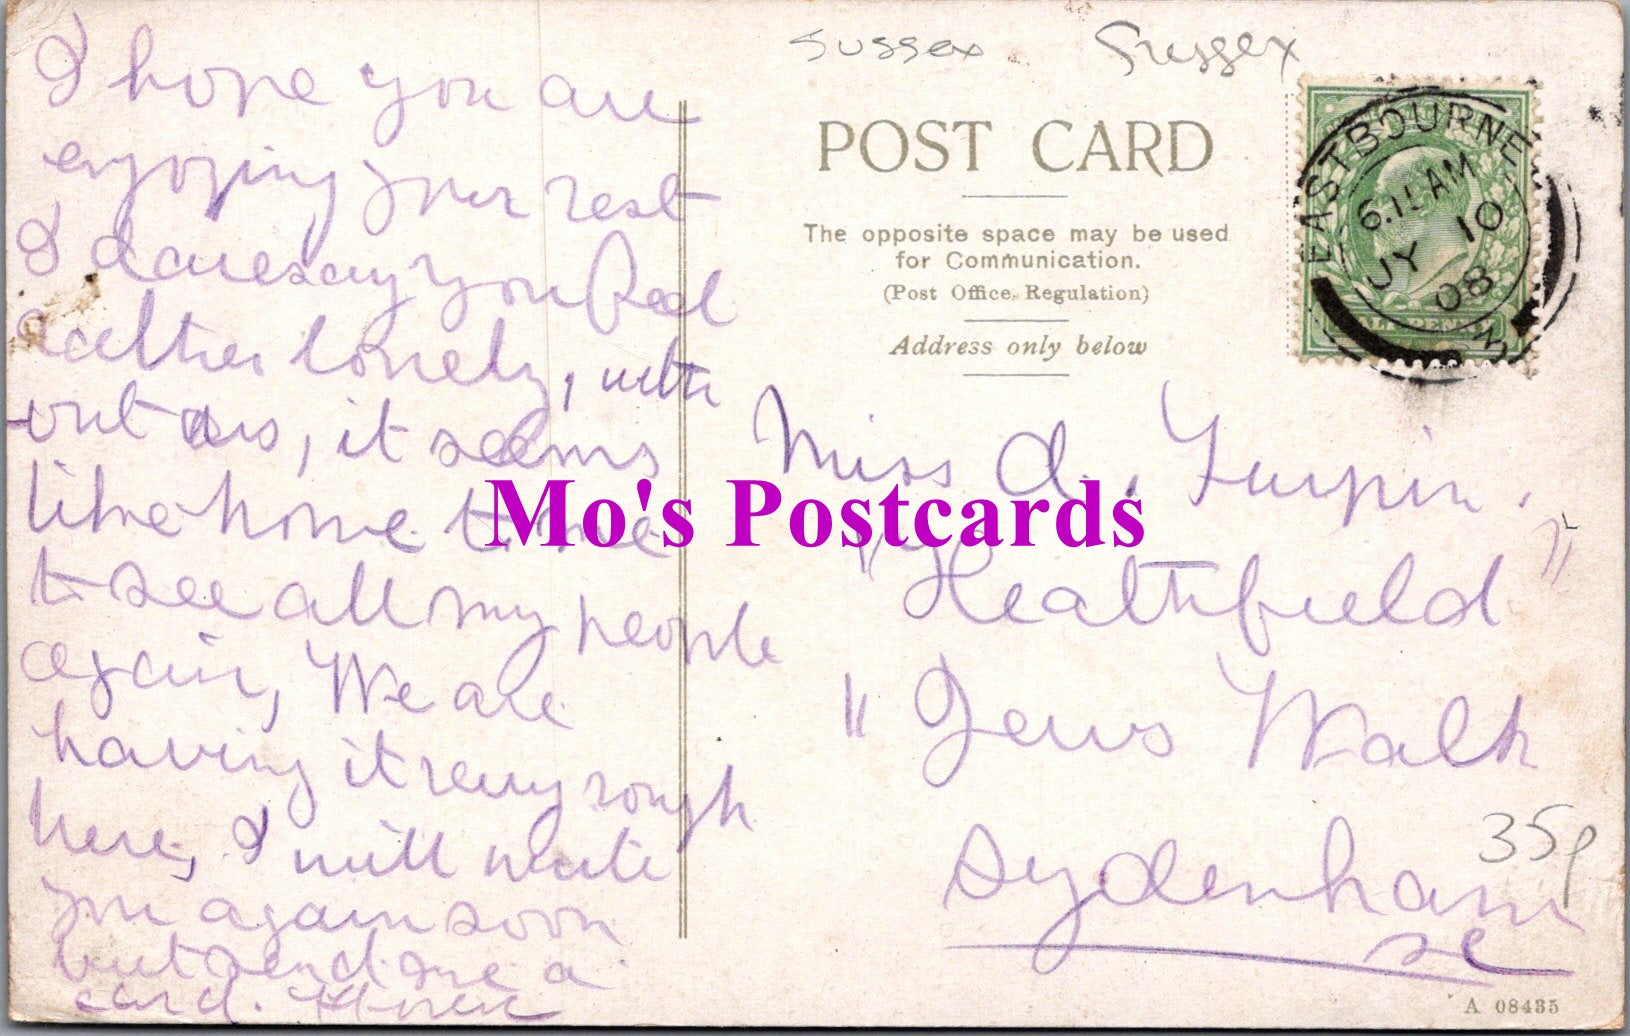 Sussex Sussex
POST CARD
The opposite space may be used
for Communication.
(Post Office Regulation)
Address only below
EASTBOURNE
6.15 AM
JY 10
08
HALFPENNY
I hope you are
enjoying your rest
I daresay you feel
rather lonely, with
-out us, it seems
like home to me
to see all my people
again, We are
having it very rough
here, I will write
you again soon
but send me a
card.
Mo's Postcards
Miss A. Turpin.
"Heathfield"
" Jews Walk
Sydenham
SE
35p
A 08435